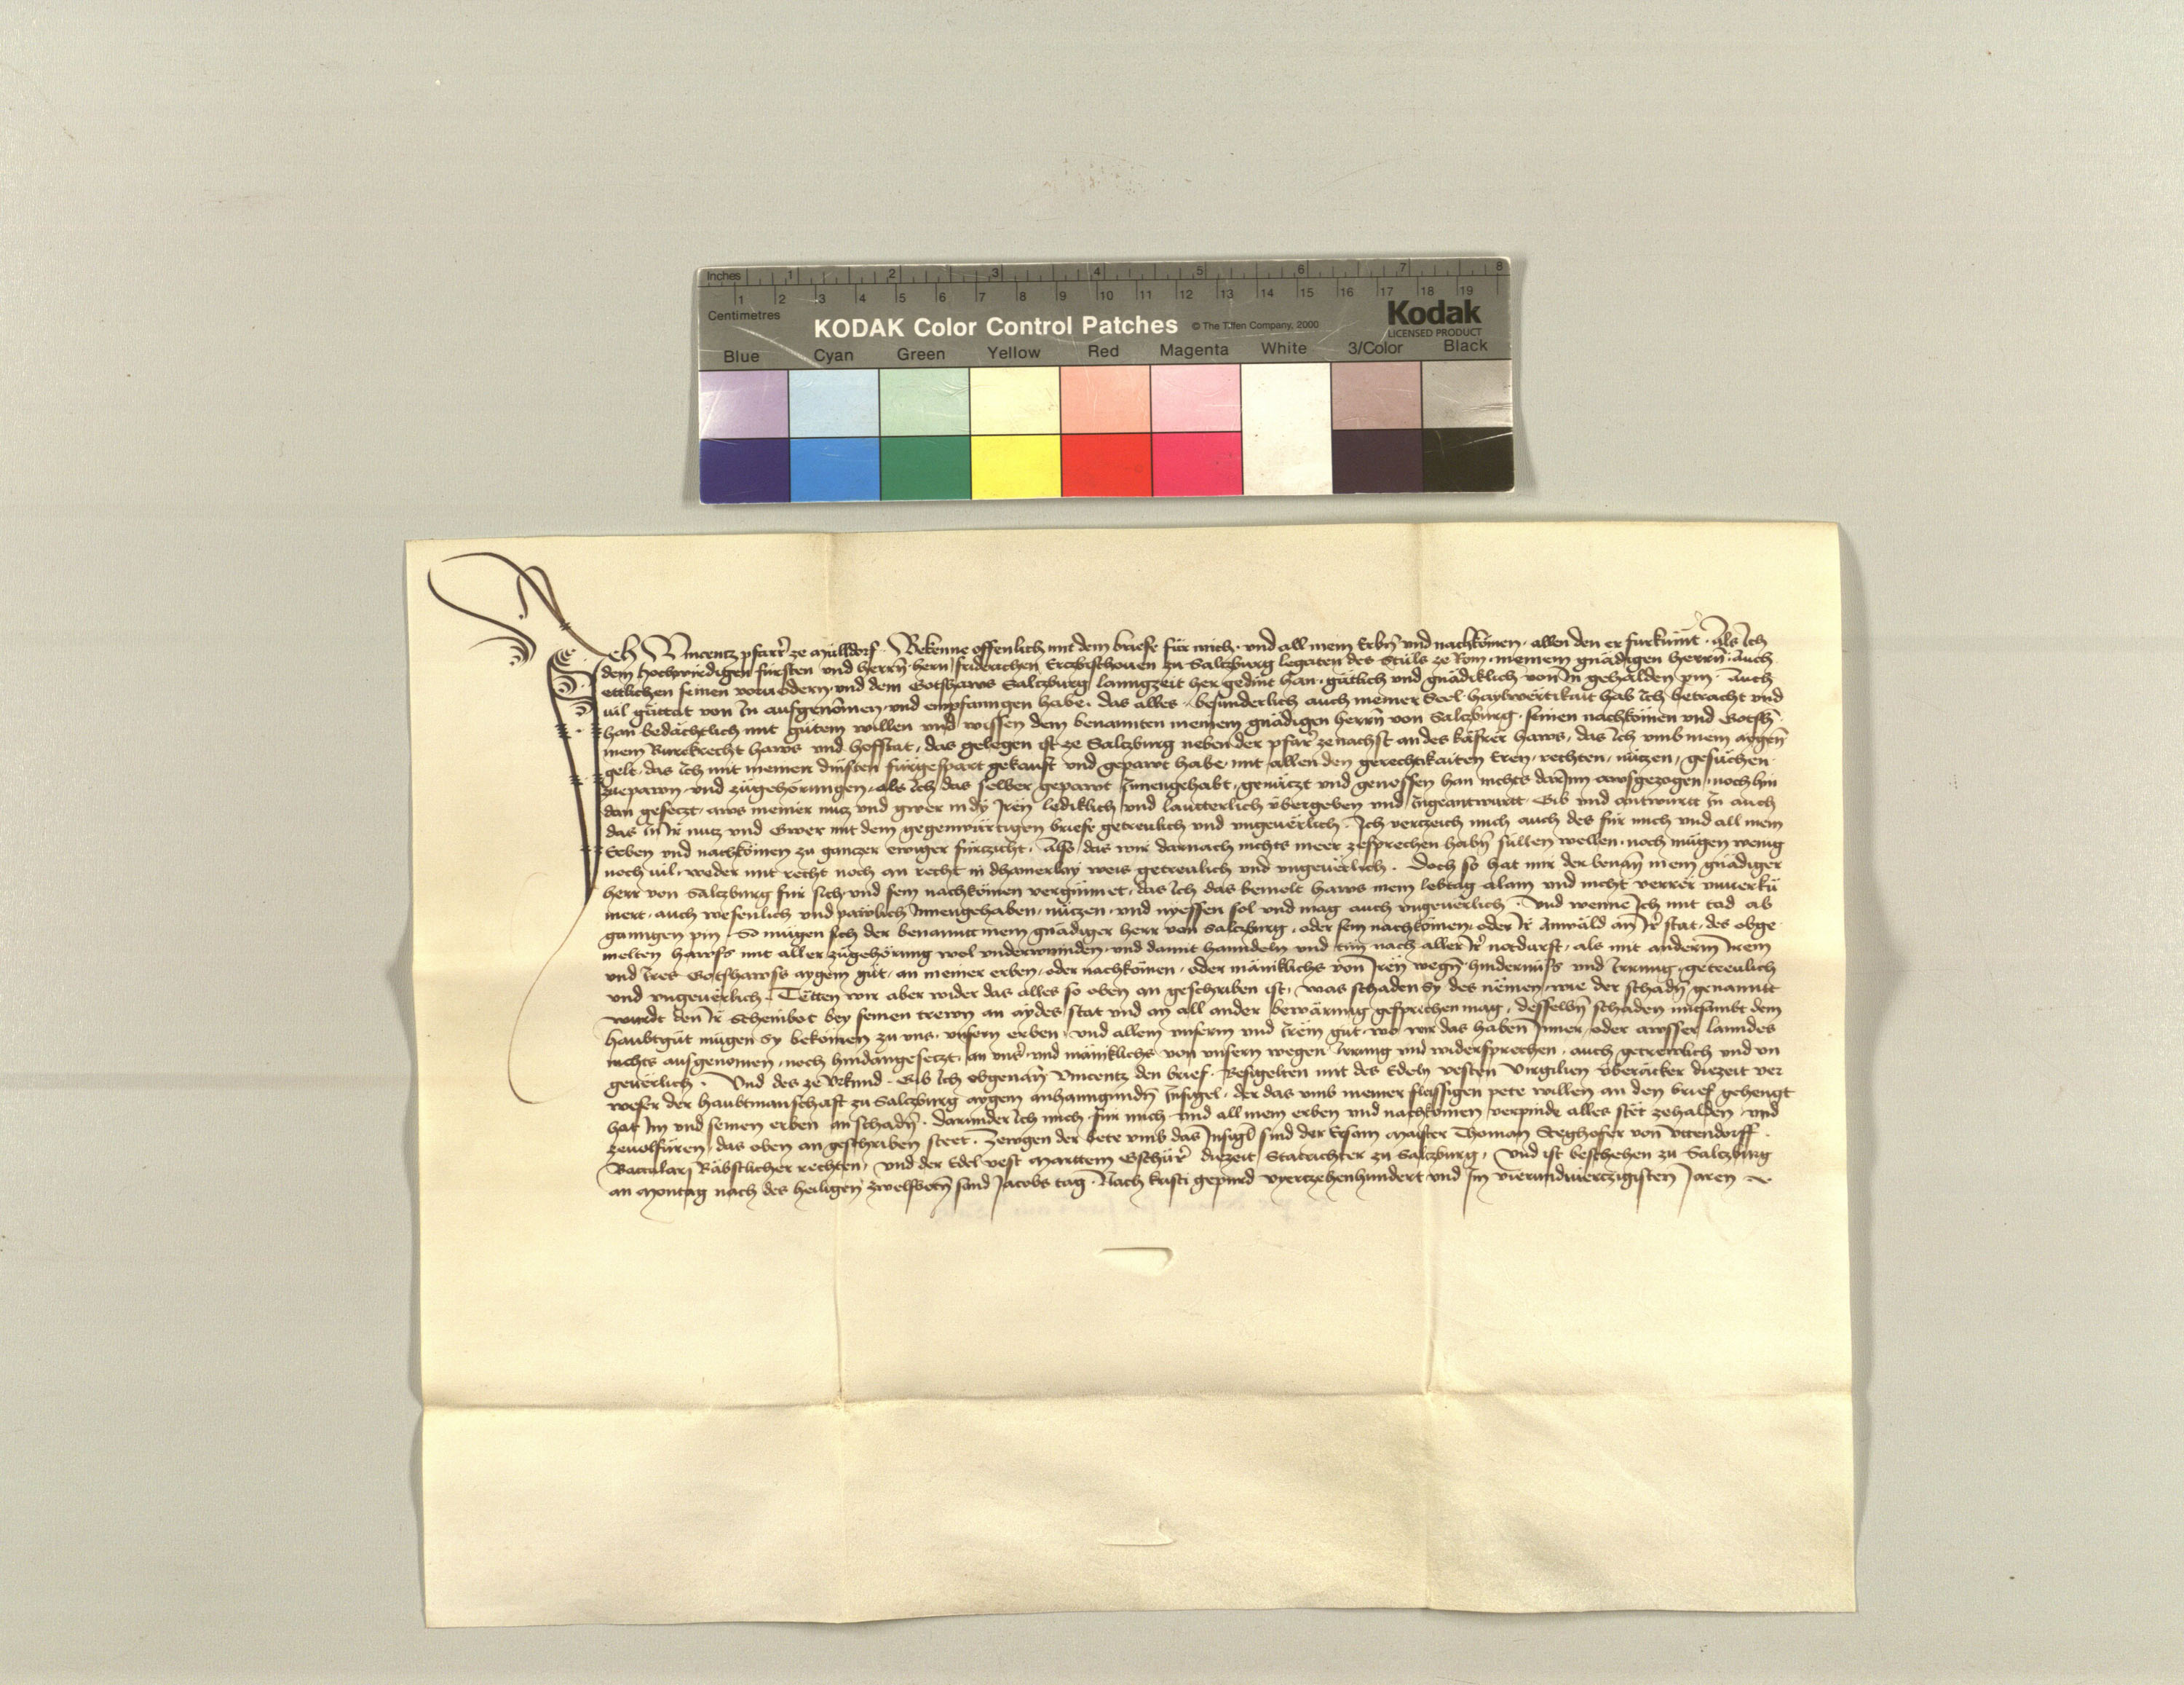 Inches 1 2 3 4 5 6 7 8
1 2 3 4 5 6 7 8 9 10 11 12 13 14 15 16 17 18 19
Centimetres
KODAK Color Control Patches © The Tiffen Company, 2000 Kodak
LICENSED PRODUCT
Blue Cyan Green Yellow Red Magenta White 3/Color Black
Ich Vincentz pfarrer ze Mülldorf. Bekenne offenlich mit dem briefe für mich, und all mein Erbn̄ und nachkömen, allen den er furkumt. Als Ich
dem Hochwirdigen fürsten und herrn̄ hern fridreichen Erczbischouen zu Saltzburg legaten des Stüls ze Rom, meinem gnädigen herrn̄. Auch
ettlichen seinen voruodern, und dem Gotshaws Saltzburg lanngzeit her gedint han, gütlich und gnädiklich von In gehalden pin. Auch
uil güttat von In aufgenömen, und empfanngen habe. das alles, besunderlich auch meiner Seel haylwertikait hab Ich betracht und
han bedächtlich mit gütem willen und wissen dem benannten meinem gnädigen herrn̄ von Saltzburg, seinen nachkömen und Gotsh
mein Burckrecht haws und hofstat, das gelegen ist ze Saltzburg neben der pfarr zenachst an des käsrer haws, das Ich umb mein aygen̄
gelt, das Ich mit meinen dinsten fürgespart gekauft und gepawt habe, mit allen den gerechtikaiten Eren, rechten, nützen, gesüchen
zuepawn, und zügehörungen, als Ich das selber gepawt Innengehabt, genützt und genossen han nichts darInn awsgezogen, noch hin
dan gesetzt, aws meiner nutz und gwer in dy Iren lediklich und lautterlich übergeben und Ingeantwurtt. Gib und antwurtt In auch
das in Ir nutz und Gwer mit dem gegenwürtigen briefe getreulich und ungeuerlich. Ich vertzeich mich auch des für mich und all mein
Erben und nachkömen zu gantzer ewiger fürtzicht. Also, das wir darnach nichts meer zesprechen habn̄ süllen wellen, noch mügen wenig
noch uil, weder mit recht noch an recht in dhainerlay weis getreulich und ungeuerlich. Doch so hat mir der benan̄ mein gnädiger
herr von Saltzburg für sich, und sein nachkömen vergünnet, das Ich das bemelt haws mein lebtag alain und nicht verrer unuerkü
mert, auch wesenlich und pawlich Innengehaben, nützen, und nyessen sol und mag auch ungeuerlich. Und wenne Ich mit tod ab
ganngen pin, So mügen sich der benannt mein gnädiger herr von Saltzburg, oder sein nachkömen, oder Ir Anwäld an Ir stat, des obge
melten hawss mit aller zügehörung wol underwinden, und damit hanndeln und tün nach aller Ir notdurft, als mit anderm Irem
und Ires Gotshawss aygem güt, an meiner erben, oder nachkömen, oder mäniklichs von Iren wegn̄ hindernüss und Irrung, getreulich
und ungeuerlich. Tetten wir aber wider das alles so oben an geschriben ist, was schaden Sy des nemen, wie der schadn̄ genannt
wurdt den Ir Scheinbot bey seinen trewn an aydes stat und an all ander bewärung gesprechen mag, desselbn̄ schaden mitsambt dem
haubtgüt mügen Sy bekömen zu uns, unsern erben, und allem unserm und Irem gut, wo wir das haben Inner, oder awsser lanndes
nichts ausgenomen, noch hindangesetzt, an uns, und mäniklichs von unsern wegen Irrung und widersprechen, auch getrewlich und un
geuerlich. Und des ze Urkund. Gib Ich obgenan̄ Vincentz den brief. Besigelten mit des Edeln vesten Virgilien Überäcker diezeit ver
weser der haubtmanschaft zu Saltzburg aygem anhanngundn̄ Insigel, der das umb meiner fleissigen pete willen an den brief gehengt
hat Im und seinen erben an schadn̄. darunder Ich mich für mich und all mein erben und nachkömen verpinde alles stet zehalden und
zeuolfüren, das oben an geschriben steet. Zewgen der bete umb das Insigl sind der Ersam Maister Thoman Steghofer von Uttendorff.
Baccularj Bäbstlicher rechten, und der Edel vest Marttein Gschürr diezeit Statrichter zu Saltzburg, Und ist beschehen zu Saltzburg
an Montag nach des heiligen zwelfbotn̄ sand Jacobs tag. Nach kristi gepurd vyertzehenhundert und Im vierundviertzigisten Jaren